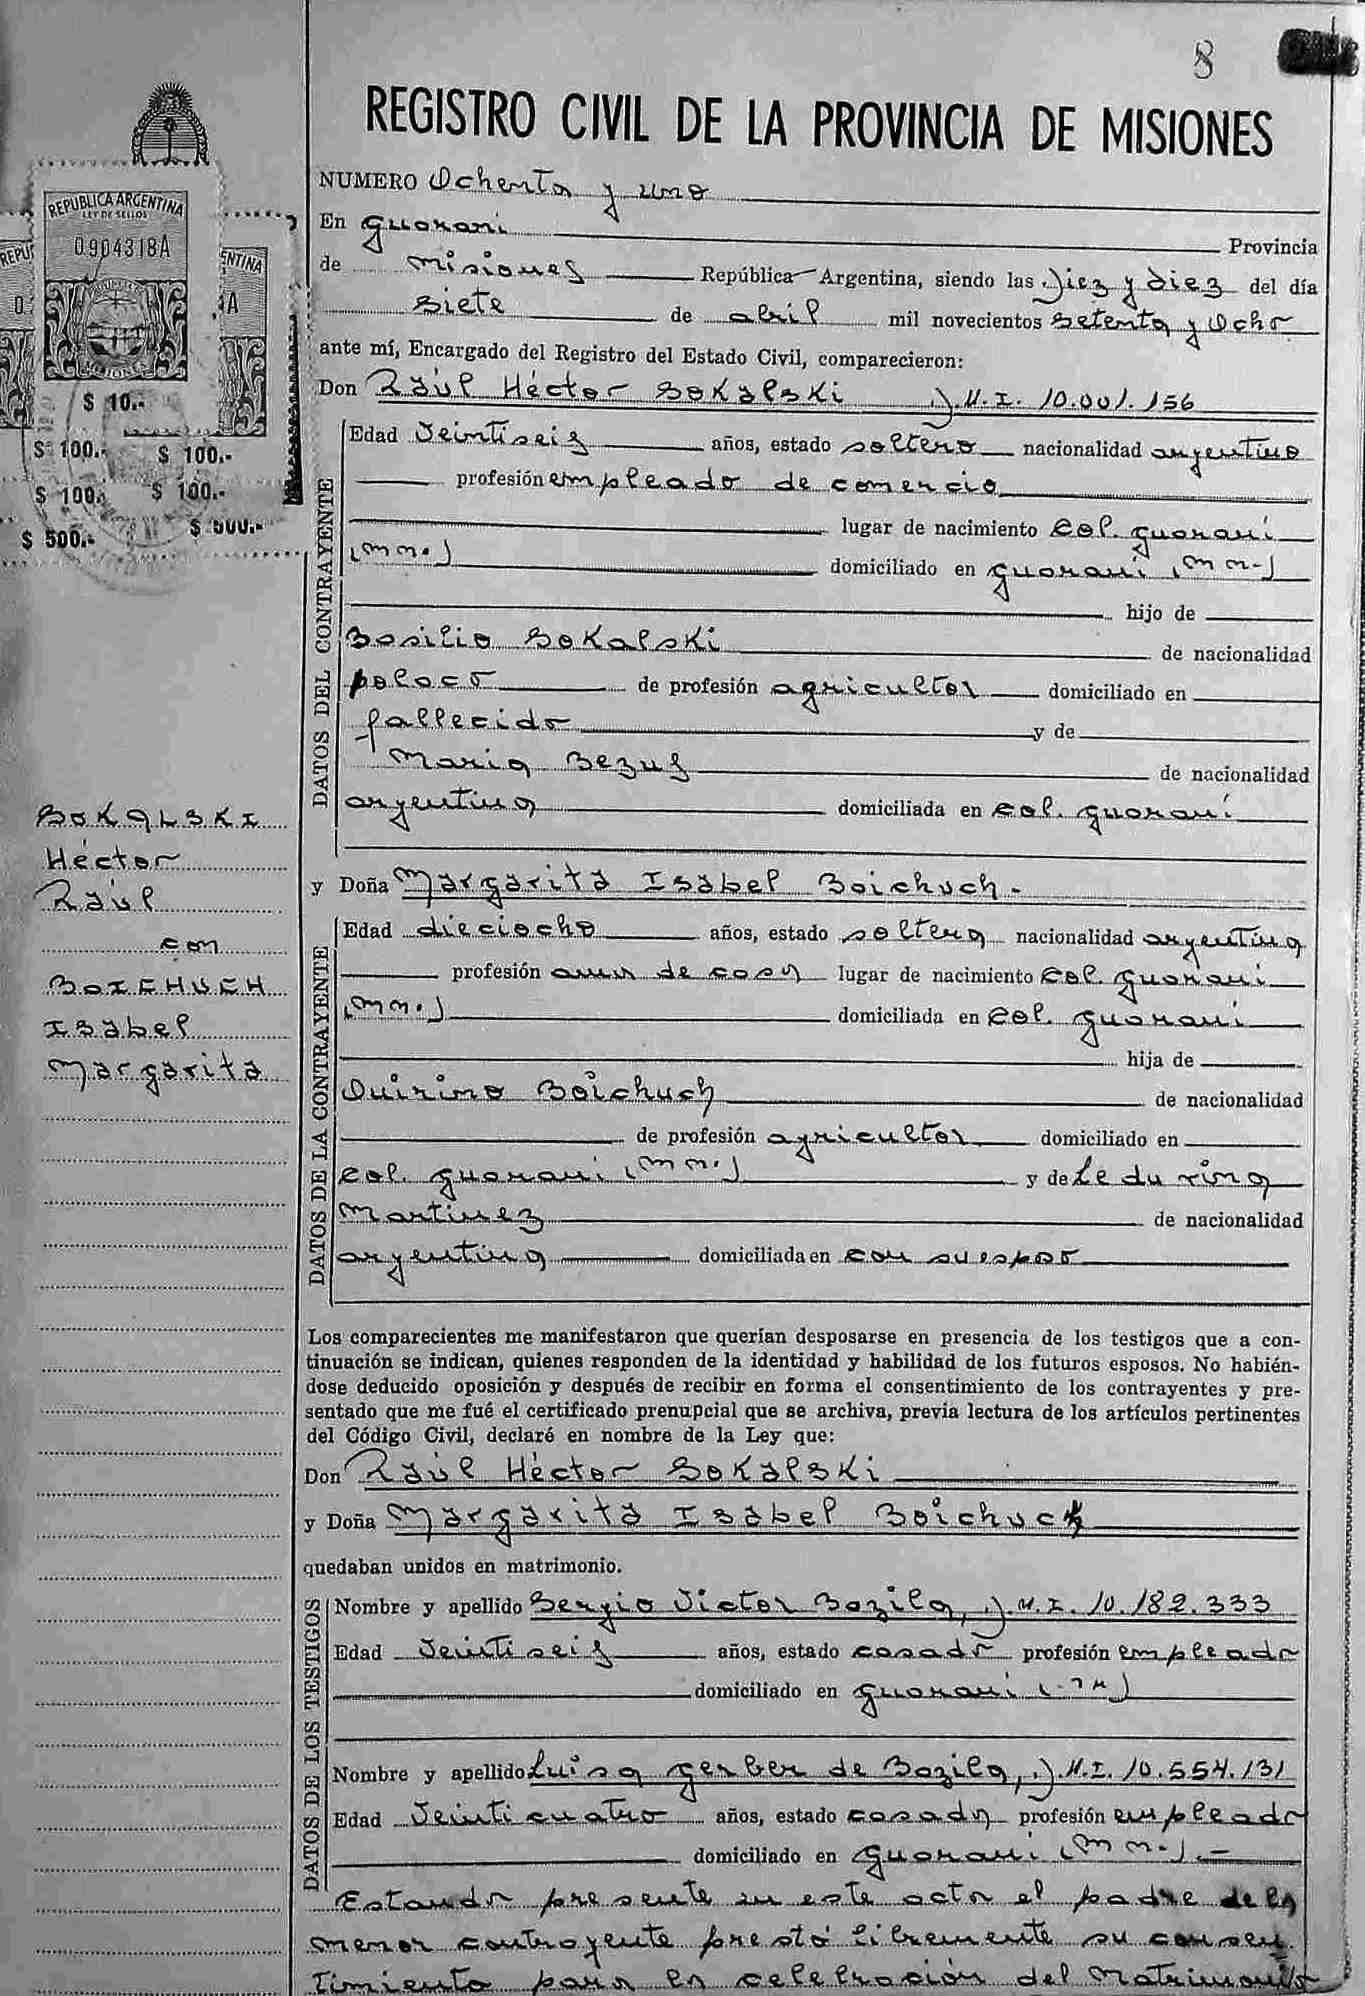 8
REGISTRO CIVIL DE LA PROVINCIA DE MISIONES
REPUBLICA ARGENTINA
LEY DE SELLOS
0904318A
REPUB
ENTINA
A
MISIONES
$ 10.-
$ 100.- $ 100.-
$ 100. $ 100.-
$ 500.- $ 500.-
NUMERO Ochenta y uno
En Guaraní Provincia
de Misiones República Argentina, siendo las Diez y diez del día
siete de abril mil novecientos setenta y Ocho
ante mí, Encargado del Registro del Estado Civil, comparecieron:
Don Raúl Héctor SOKALSKI D.N.I. 10.001.156
DATOS DEL CONTRAYENTE
Edad Veintiseis años, estado soltero nacionalidad argentino
profesión empleado de comercio
lugar de nacimiento Col. Guaraní
(Mnes.) domiciliado en Guaraní (Mnes.)
hijo de
Basilio Sokalski de nacionalidad
polaco de profesión agricultor domiciliado en
fallecido y de
Maria Bezus de nacionalidad
argentina domiciliada en Col. Guaraní
SOKALSKI
Héctor
Raúl
con
BOICHUCH
Isabel
Margarita
y Doña Margarita Isabel Boichuch.-
DATOS DE LA CONTRAYENTE
Edad dieciocho años, estado soltera nacionalidad argentina
profesión ama de casa lugar de nacimiento Col. Guaraní
(Mnes.) domiciliada en Col. Guaraní
hija de
Quirino Boichuch de nacionalidad
de profesión agricultor domiciliado en
Col. Guaraní (Mnes.) y de Leduvina
Martinez de nacionalidad
argentina domiciliada en con su esposo
Los comparecientes me manifestaron que querían desposarse en presencia de los testigos que a con-
tinuación se indican, quienes responden de la identidad y habilidad de los futuros esposos. No habién-
dose deducido oposición y después de recibir en forma el consentimiento de los contrayentes y pre-
sentado que me fué el certificado prenupcial que se archiva, previa lectura de los artículos pertinentes
del Código Civil, declaré en nombre de la Ley que:
Don Raúl Héctor Sokalski
y Doña Margarita Isabel Boichuch
quedaban unidos en matrimonio.
DATOS DE LOS TESTIGOS
Nombre y apellido Sergio Victor Bazila, D.N.I. 10.182.333
Edad Veintiseis años, estado casado profesión empleado
domiciliado en Guaraní
Nombre y apellido Luisa Gerber de Bazila, D.N.I. 10.554.131
Edad Veinticuatro años, estado casada profesión empleada
domiciliado en Guaraní (Mnes.).-
Estando presente en este acto el padre de la
menor contrayente prestó libremente su consen
timiento para la celebración del Matrimonio